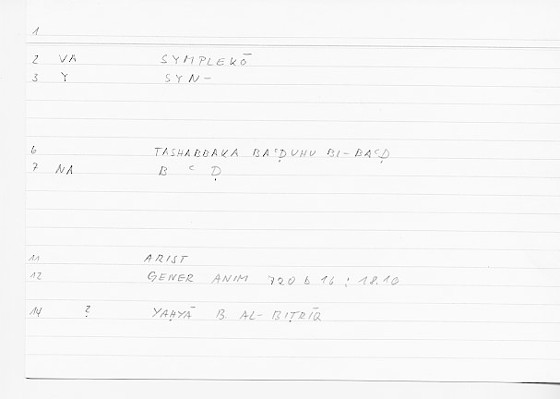 1
2 VA SYMPLEKŌ
3 Y SYN-
6 TASHABBAKA BAʿḌUHU BI-BAʿḌ
7 NA B ʿ Ḍ
11 ARIST
12 GENER ANIM 720 b 16 ; 18.10
14 ? YAḤYĀ B AL-BIṬRĪQ